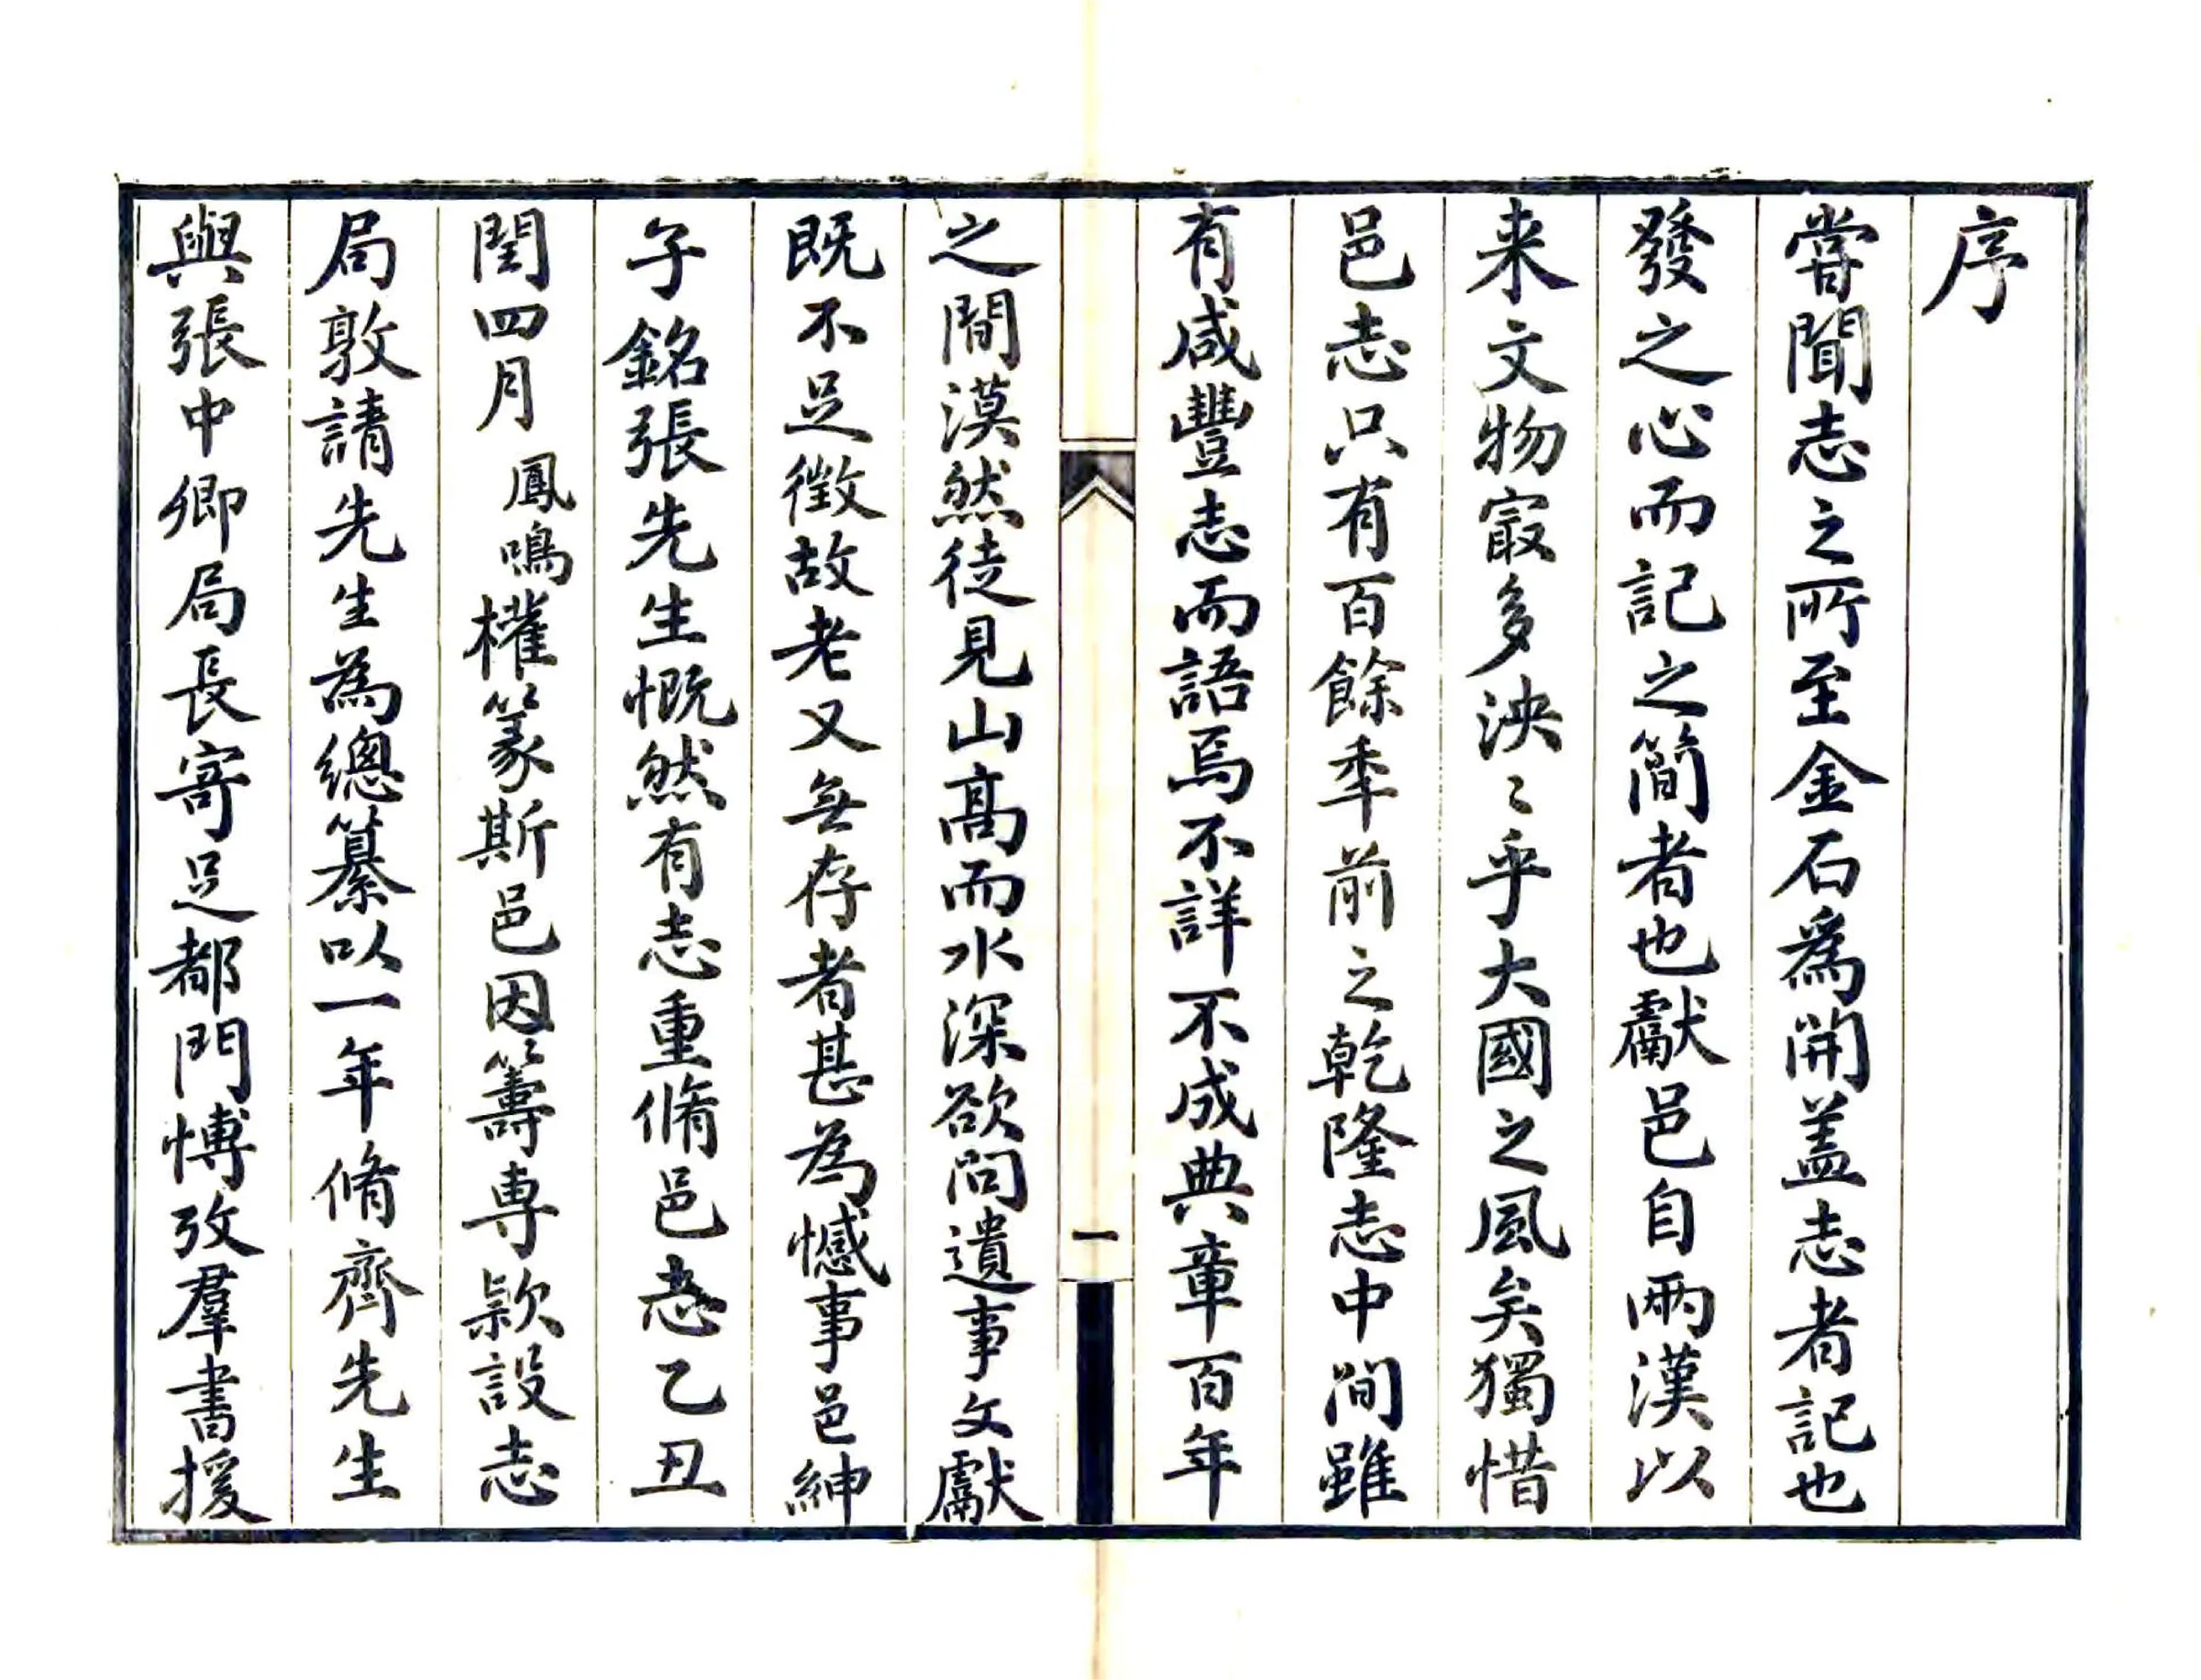 序
甞聞志之所至金石爲開盖志者記也
發之心而記之簡者也獻邑自兩漢以
来文物㝡多泱〻乎大國之風矣獨惜
邑志只有百餘秊前之乾隆志中间雖
有咸豐志而語焉不詳不成典章百年
之間漠然徒見山髙而水深欲问遺事文獻
既不足徴故老又無存者甚為憾事邑紳
子銘張先生慨然有志重脩邑志乙丑
閏四月鳳鳴權篆斯邑因籌専欵設志
局敦請先生為總纂以一年脩齊先生
與張中卿局長寄足都門愽攷羣書援
一